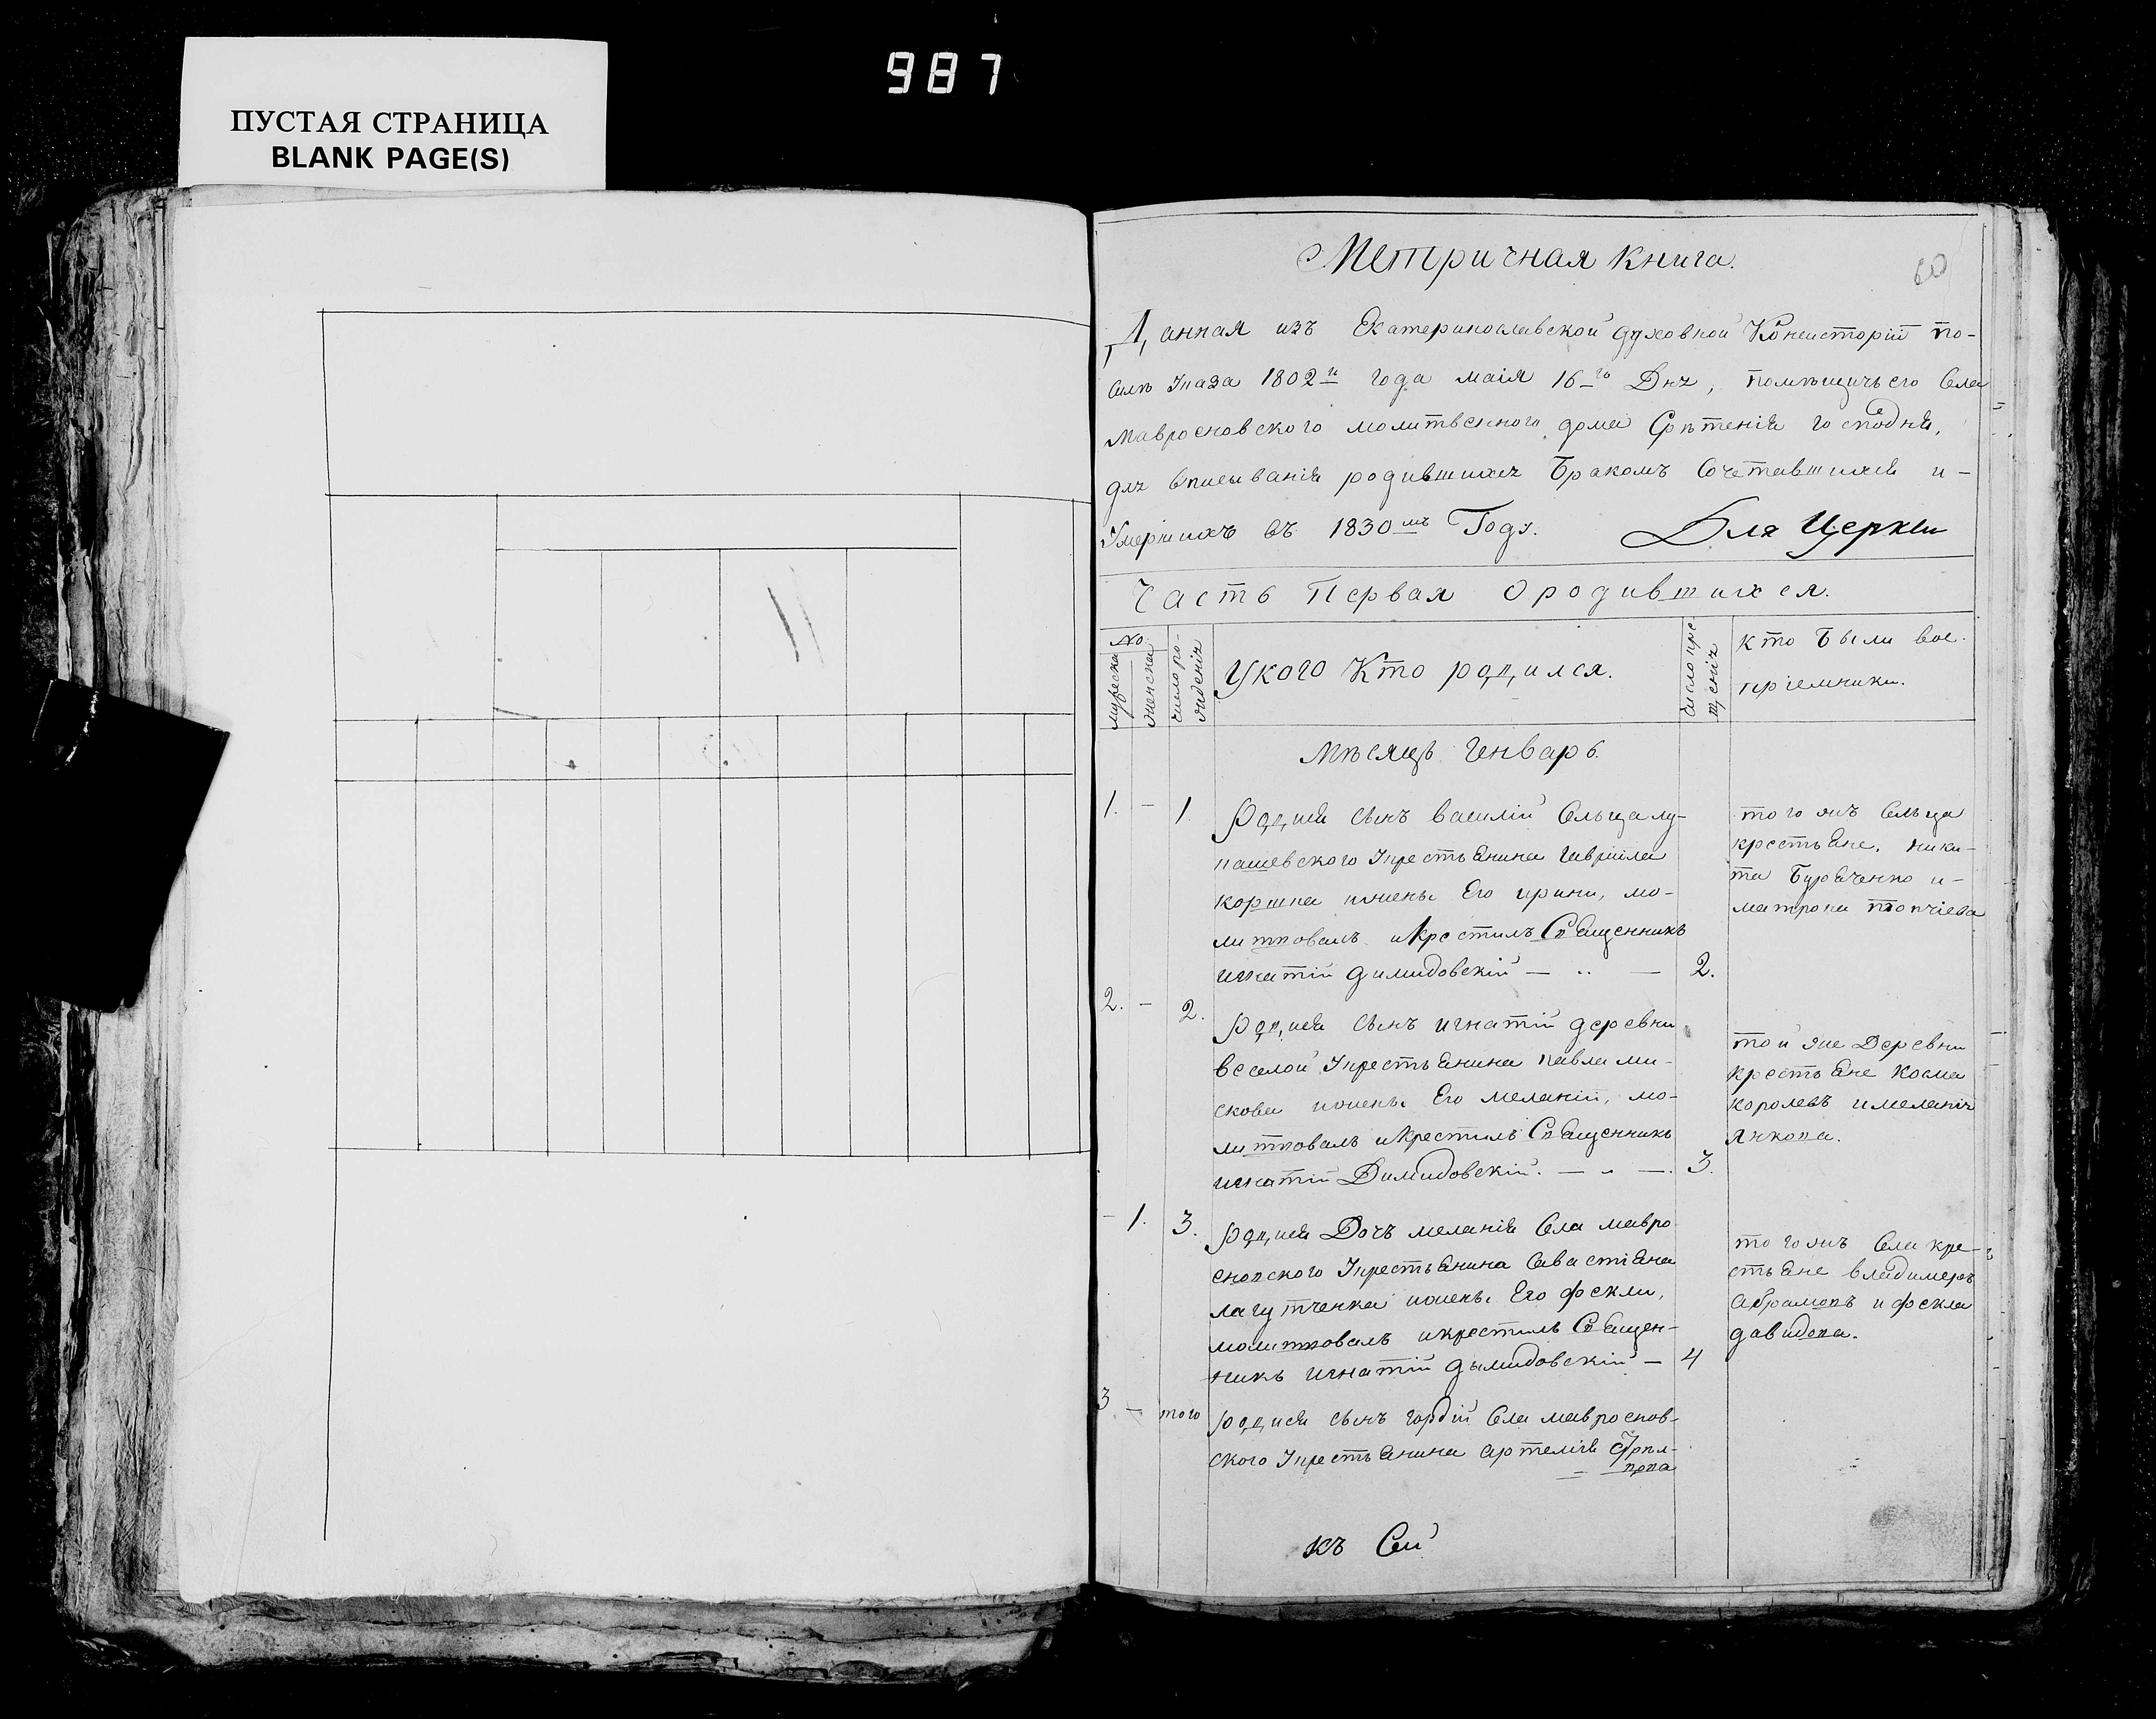 987
ПУСТАЯ СТРАНИЦА
BLANK PAGE(S)
Метричная книга.
60
Данная изъ Екатеринославской духовной Консисторіи по-
силѣ Указа 1802го года маія 16го Дня, помѣщичьего Села
мавросновского молитвенного дома Срѣтенія господня,
для вписыванія родившихся бракомъ Сочетавшихся и-
Умершихъ въ 1830мъ Году. Для Церкви
Часть Первая Ородившихся.
No
мужеска
женска
число ро-
жденія
Укого Кто родился.
число кре-
щенія
кто были вос-
пріемники.
мѣсяцъ генварь.
1. - 1. Родися сынъ василій Сельца лу-
пашевского Укрестьянина гавріила
коршна ижены Его ирини, мо-
литвовалъ икрестилъ Священникъ
игнатій димидовскій — .. — 2.
того жъ Сельца
крестьяне, ники-
та Бураченко и-
матрона топчіева
2. - 2. Родися сынъ игнатій деревни
веселой Укрестьянина павла ми-
скова ижены Его меланіи, мо-
литвовалъ икрестилъ Священникъ
игнатій Димидовскій. — .. — 3.
той же Деревни
крестьяне косма
королевъ имеланія
янкова.
- 1. 3. Родися Дочъ меланія Села мавро
сновского Укрестьянина Савастіяна
лагутченка ижены Его феклы,
молитвовалъ икрестилъ Священ-
никъ игнатій дымидовскій — 4
того жъ Села кре-
стьяне владимеръ
абрамовъ ифекла
давидова.
3 - того Родися сынъ гордій Села мавроснов-
ского Укрестьянина артемія
къ Сей